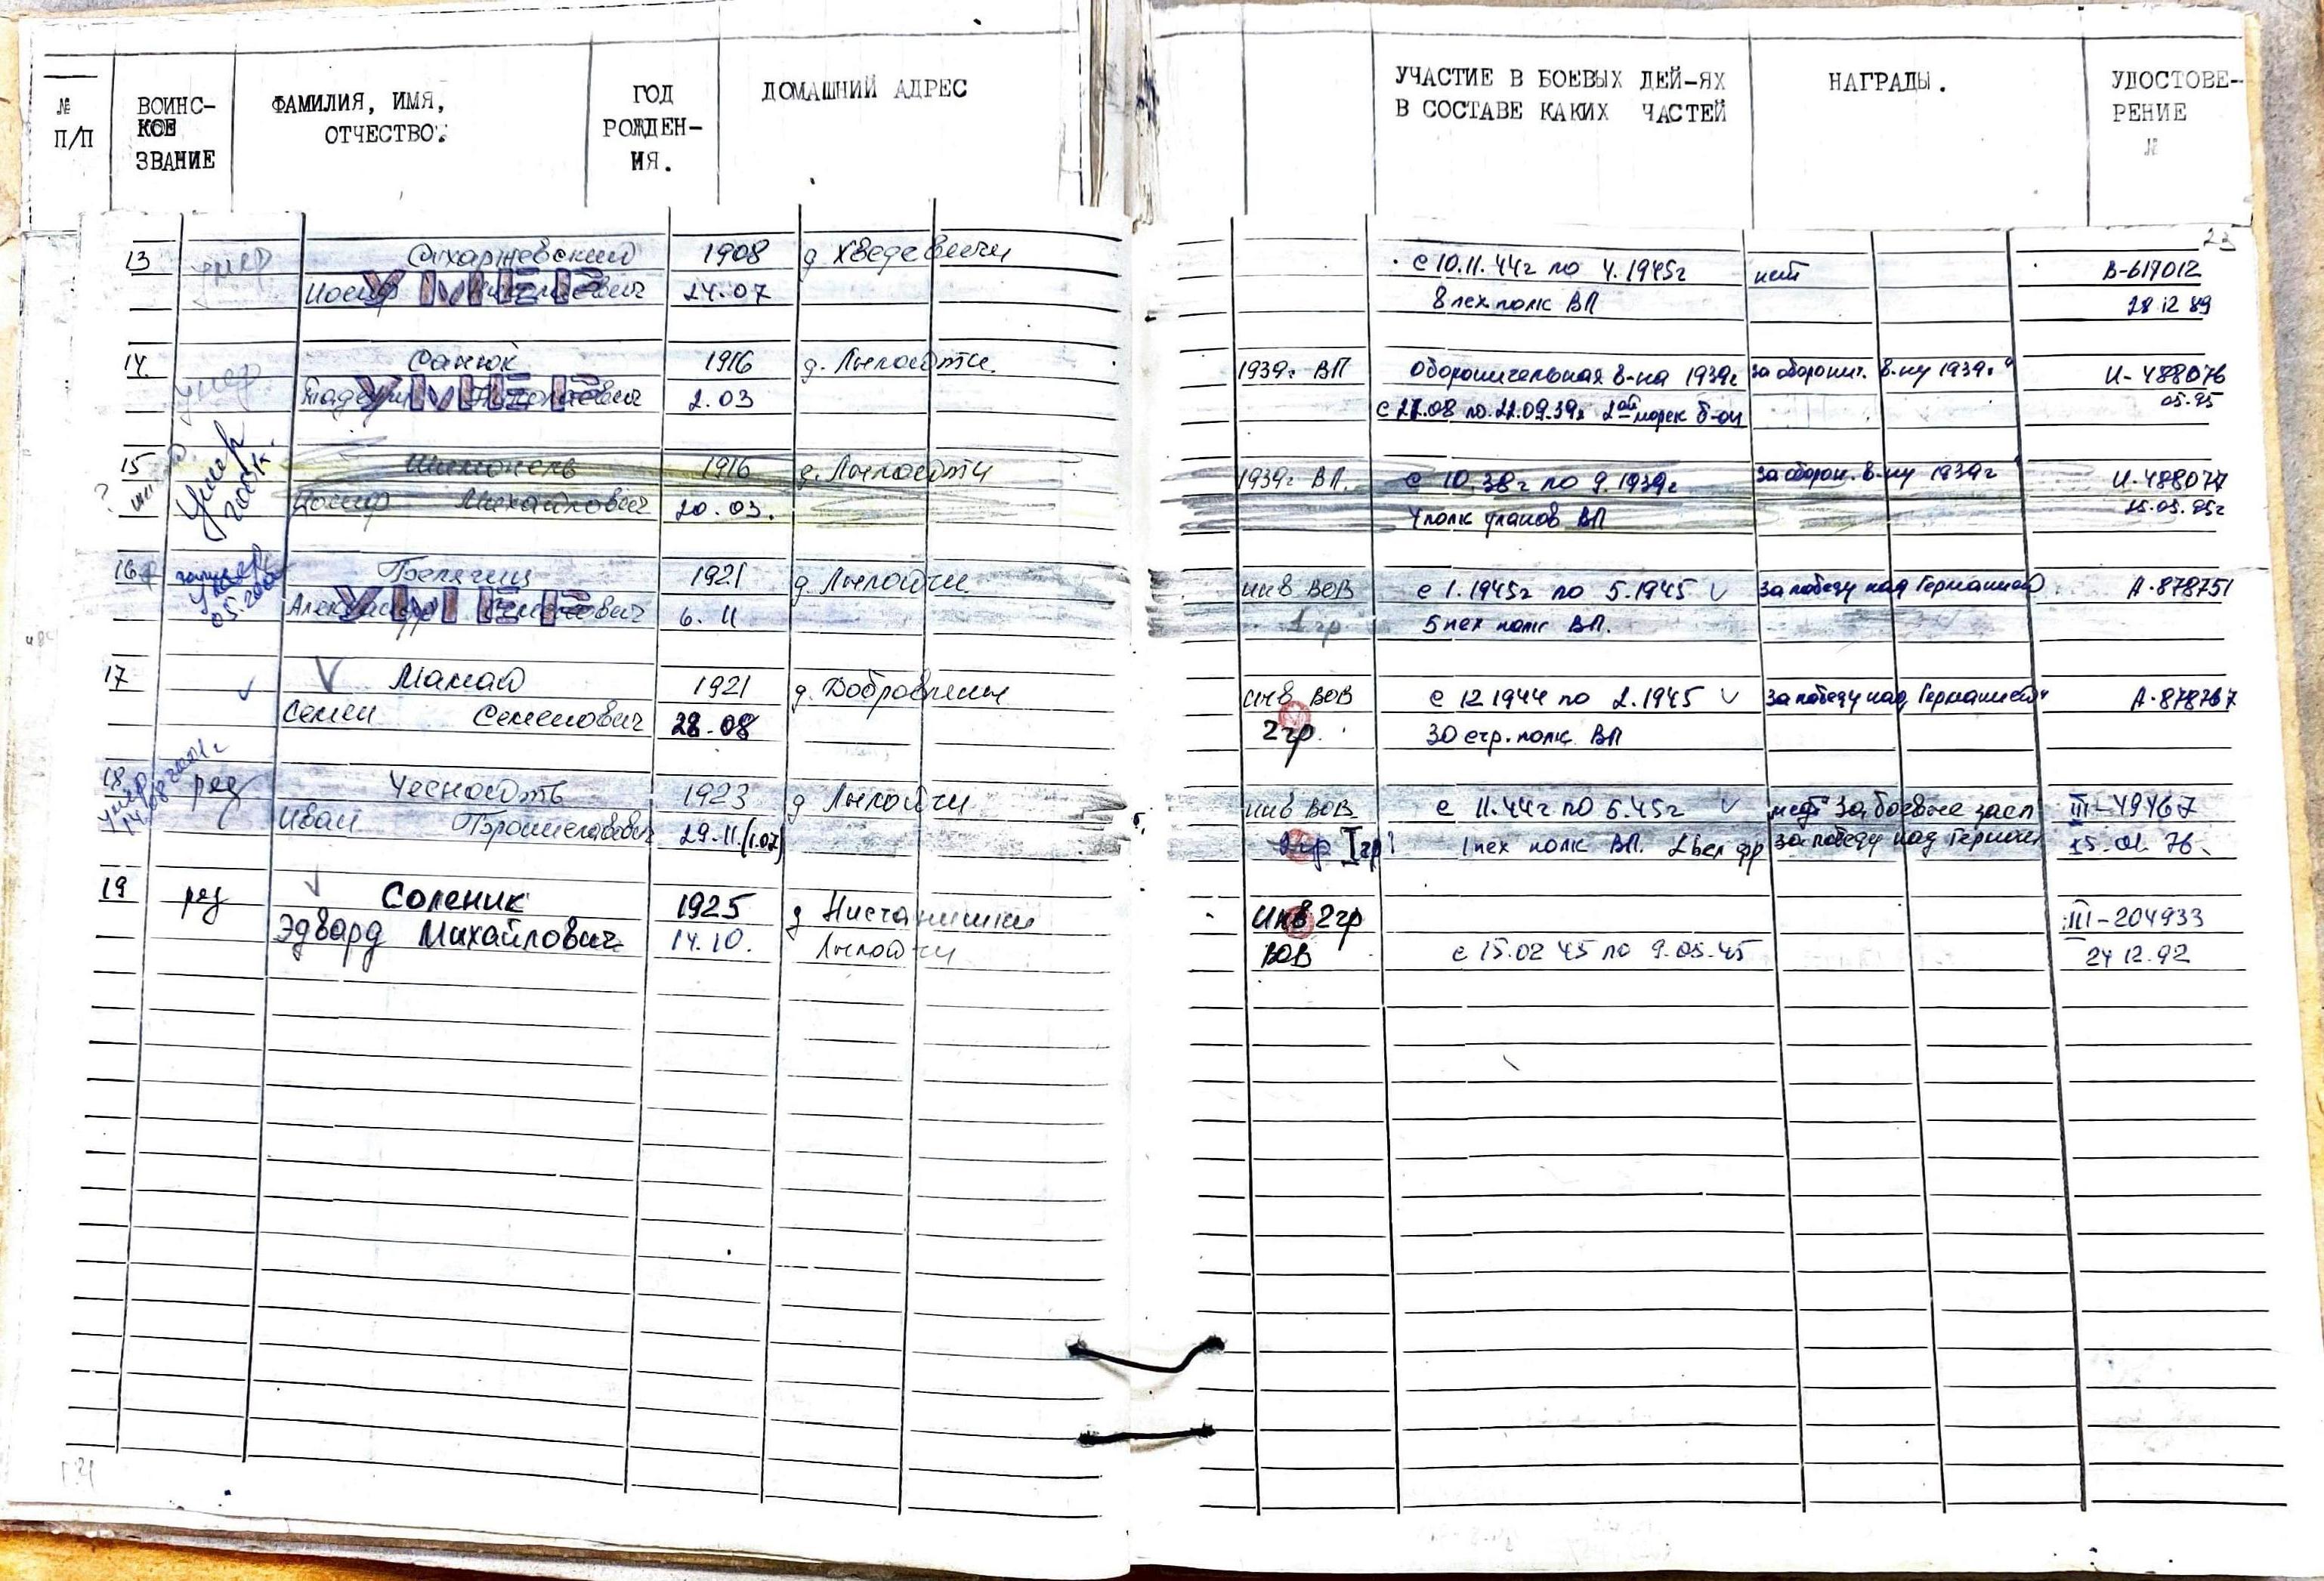 № П/П ВОИНС-КОЕ ЗВАНИЕ ФАМИЛИЯ, ИМЯ, ОТЧЕСТВО. ГОД РОЖДЕН-ИЯ. ДОМАШНИЙ АДРЕС УЧАСТИЕ В БОЕВЫХ ДЕЙ-ЯХ В СОСТАВЕ КАКИХ ЧАСТЕЙ НАГРАДЫ. УДОСТОВЕ-РЕНИЕ №
23
13 умер Сахаржевский 1908 д Хведевичи с 10.11.44г по 4.1945г нет В-617012
Иосиф УМЕР 24.07 8 пех полк ВП 28 12 89
14. умер Санюк 1916 д. 1939г ВП Оборонительная в-на 1939г за оборонит. в-ну 1939г" И-488076
УМЕР 2.03 с 27.08 по 22.09.39г 2ой морск б-он 05.95
15 Умер 2001г. 1916 д. 1939г ВП. с 10.38г по 9.1939г за оборон. в-ну 1939г" И-488077
Иосиф Михайлович 20.03. 4 полк уланов ВП 25.05.95г
16 умер 1921 д инв ВОВ с 1.1945г по 5.1945 За победу над Германией А-878751
05.2000 Александр УМЕР 6.11 1 гр 5 пех полк ВП.
17 Мамай 1921 д. Добровляны инв ВОВ с 12 1944 по 2.1945 За победу над Германией" А-878767
Семен Семенович 28.08 2 гр. 30 стр. полк ВП
18 ряд Чесность 1923 д инв ВОВ с 11.44г по 5.45г нет За боевые засл III-49467
умер 14.08 2001г Иван Брониславович 29.11.(1.07) 2 гр I гр 1 пех полк ВП. 2 Бел фр за победу над Герман 15.01.76.
19 ряд Соленик 1925 д Инв 2 гр III-204933
Эдвард Михайлович 14.10. ВОВ с 15.02 45 по 9.05.45 24 12.92